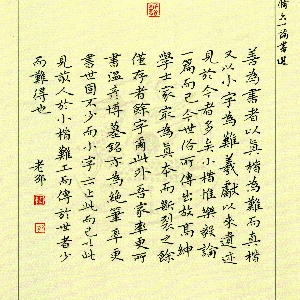 善為書者以真楷為難而真楷
又以小字為難羲獻以來遺迹
見於今者多矣小楷惟樂毅論
一篇而已今世俗所傳出故高紳
學士家最為真本而斷裂之餘
僅存者餘字爾此外吾家率更所
書溫彥博墓銘亦為絕筆率更
書世固不少而小字亦止此而已以此
見前人於小楷難工而傳於世者少
而難得也
老邻